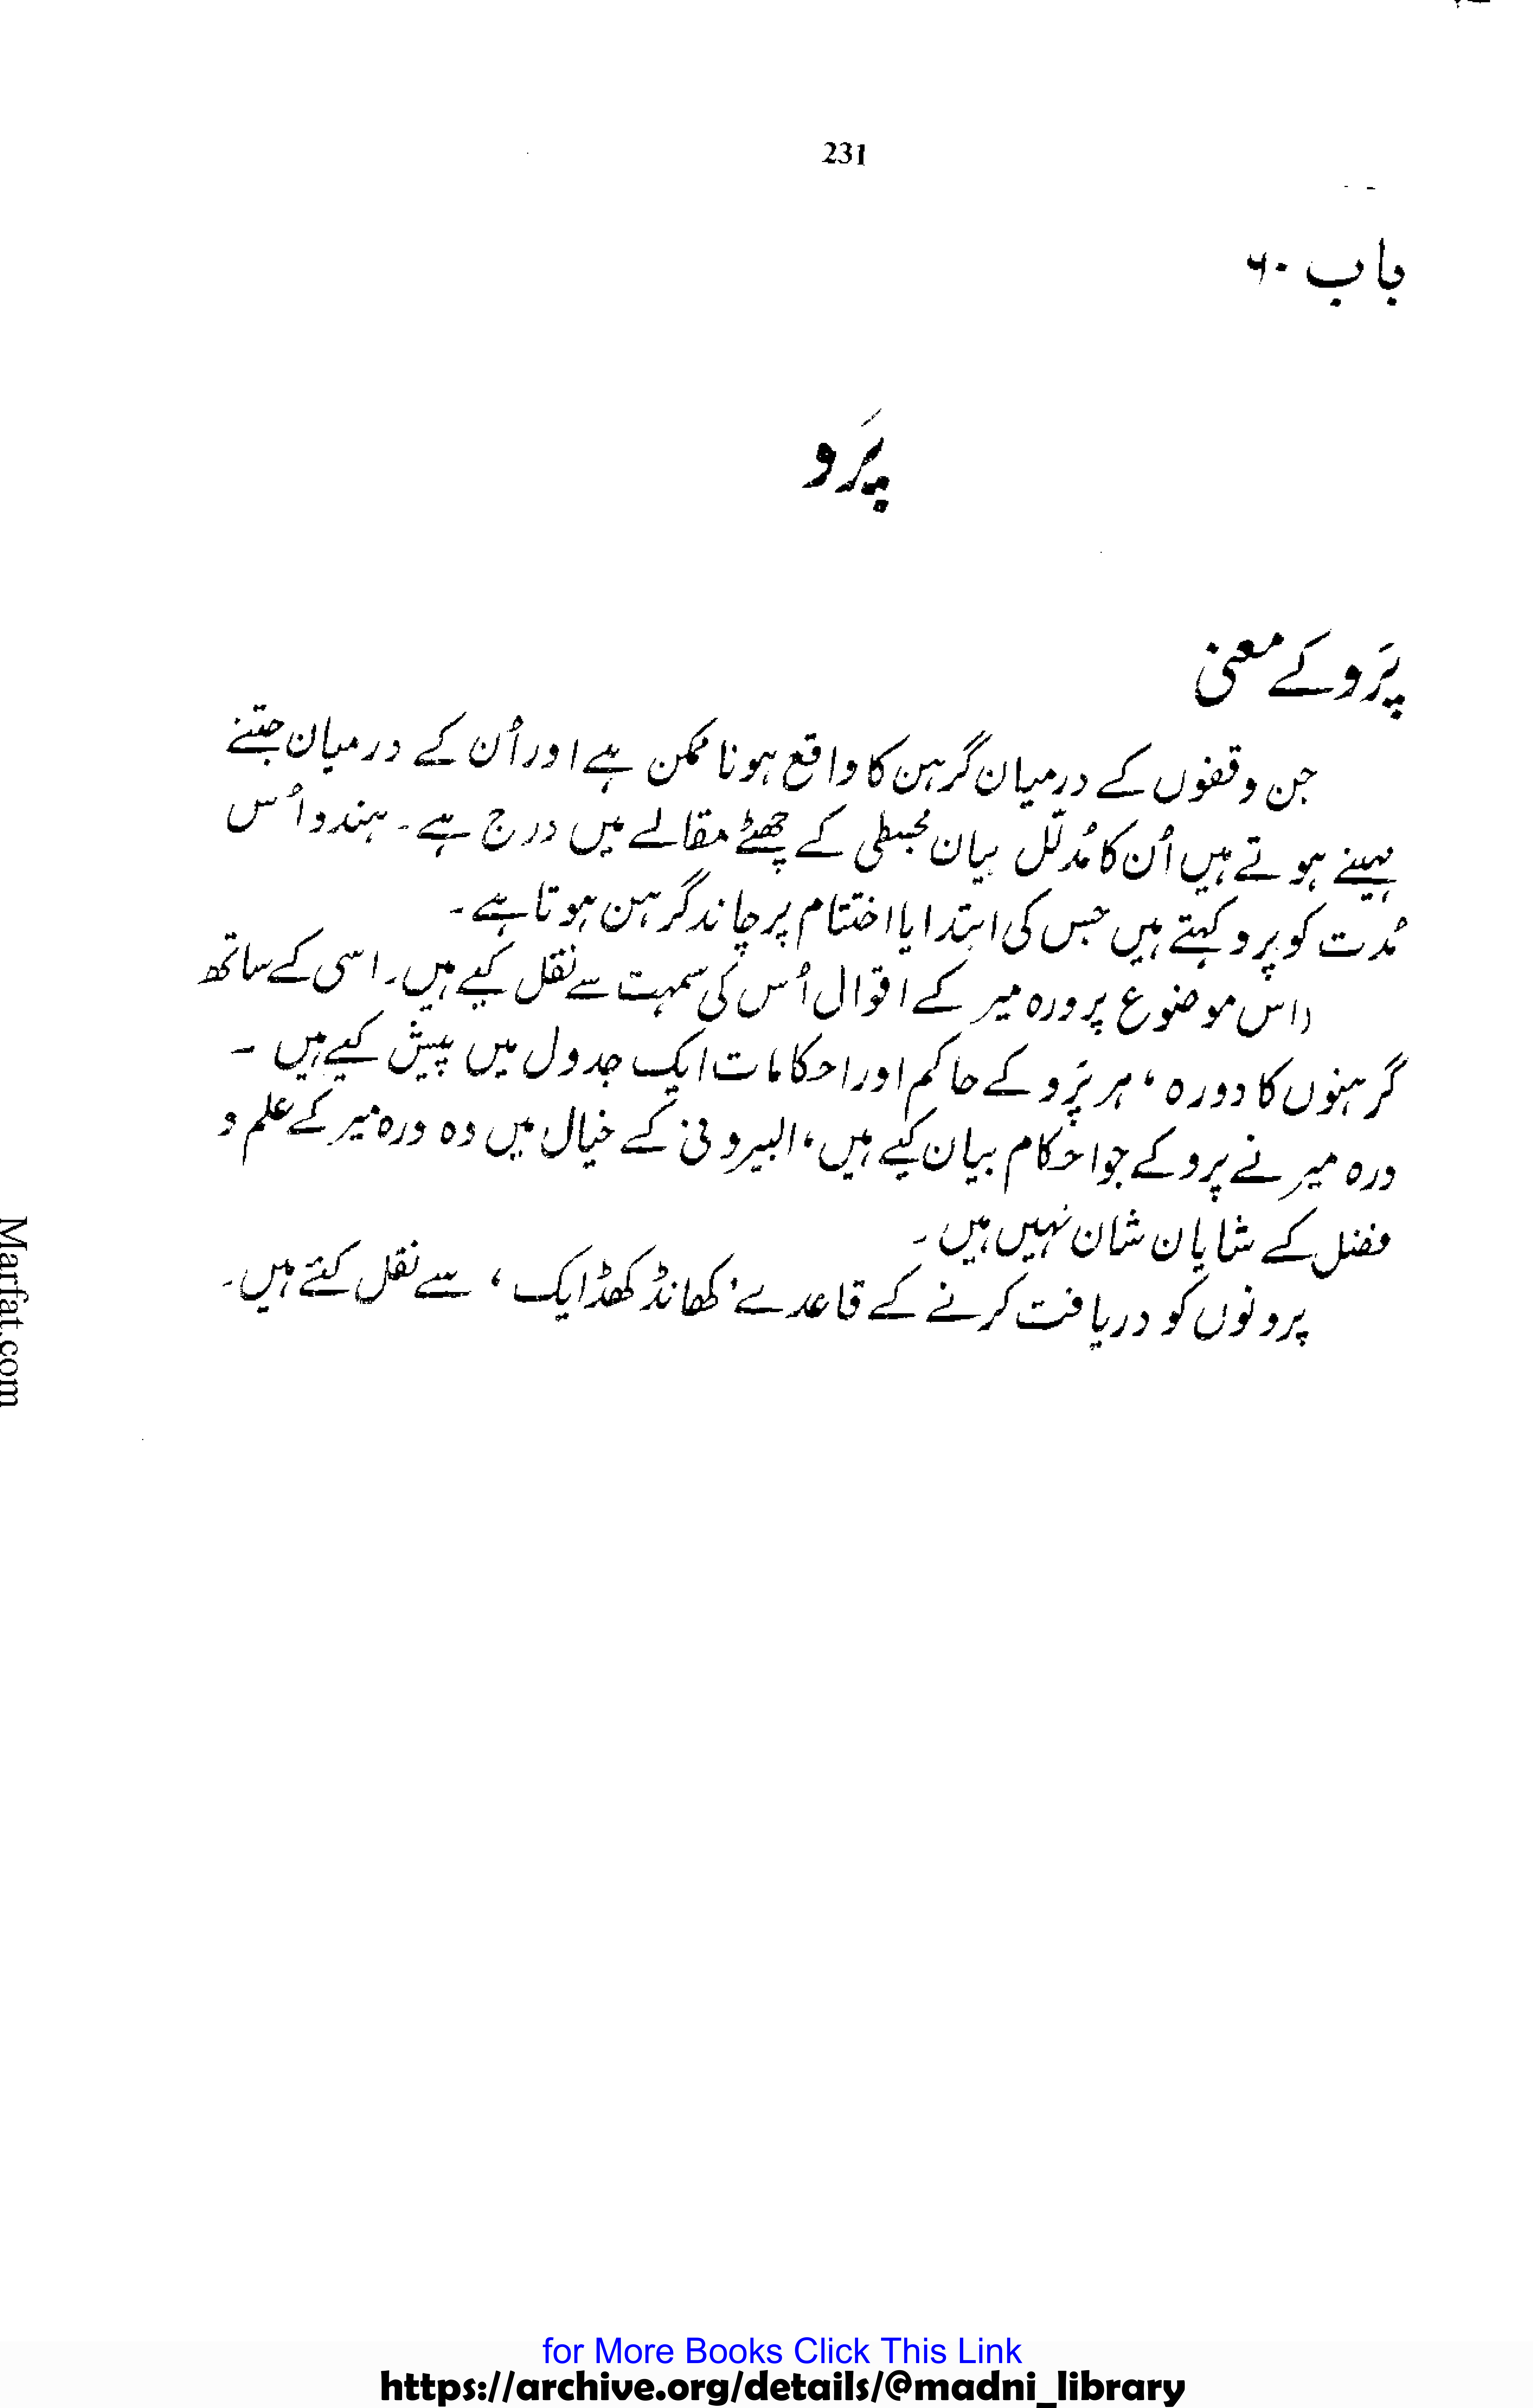 231
باب ۶۰
پَرو
پَرو کے معنی
جن وقفوں کے درمیان گرہن کا واقع ہونا ممکن ہے اور اُن کے درمیان جتنے
مہینے ہوتے ہیں اُن کا مُدلّل بیان مجسطی کے چھٹے مقالے میں درج ہے۔ ہندو اُس
مُدت کو پرو کہتے ہیں جس کی ابتدا یا اختتام پر چاند گرہن ہوتا ہے۔
(اس موضوع پر ورہ میر کے اقوال اُس کی سمہت سے نقل کیے ہیں۔ اسی کے ساتھ
گرہنوں کا دورہ، ہر پَرو کے حاکم اور احکامات ایک جدول میں پیش کیے ہیں ۔
ورہ میر نے پرو کے جو احکام بیان کیے ہیں، البیرونی کے خیال میں وہ ورہ میر کے علم و
فضل کے شایان شان نہیں ہیں ۔
پرونوں کو دریافت کرنے کے قاعدے 'کھانڈ کھڈایک، سے نقل کئے ہیں۔
Marfat.com
for More Books Click This Link
https://archive.org/details/@madni_library